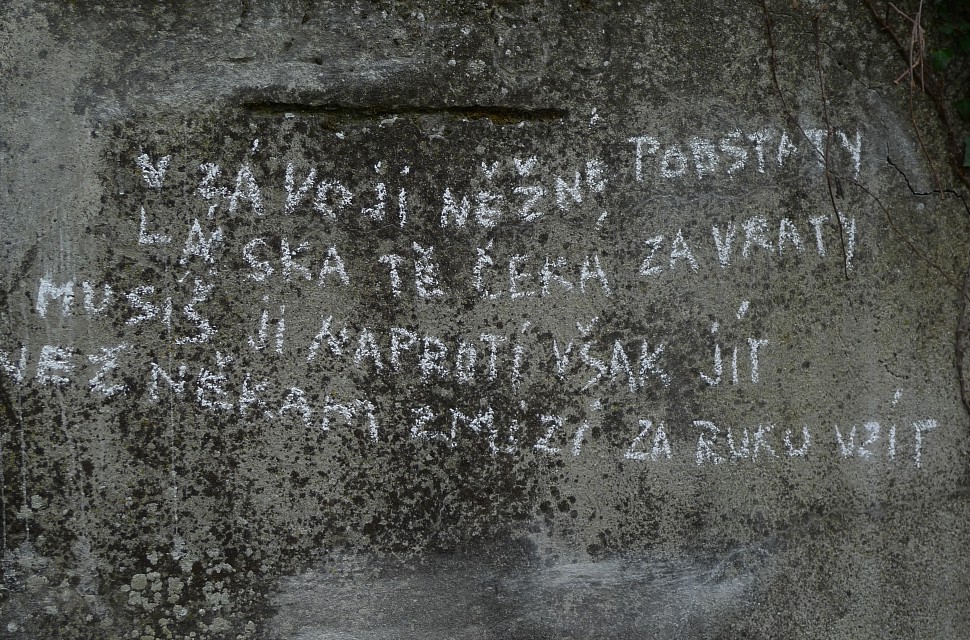 V ZÁVOJI NĚŽNÉ PODSTATY
LÁSKA TĚ ČEKÁ ZÁVRATY
MUSÍŠ JÍ NAPROTÍ VŠAK JÍT
NEŽ NĚKAM ZMIZÍ ZA RUKU VZÍT